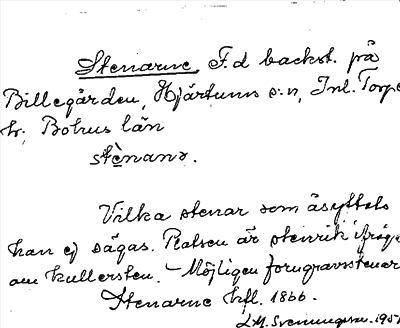 Stenarne, F.d backst. på
Billegården, Hjärtums s:n, Inl. Torpe
hr. Bohus län
stènanə.
Vilka stenar som åsyftats
kan ej sägas. Platsen är stenrik ifråga
om kullersten. – Möjligen forngravsstenar
Stenarne hfl. 1866.
J.M. Svenungsson. 1951